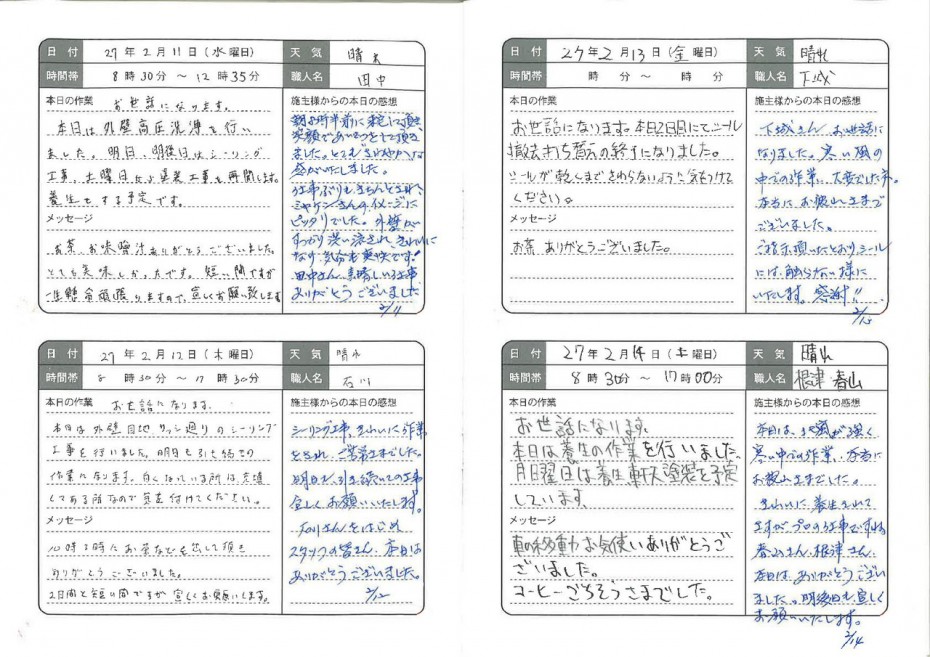 日 付 27 年 2 月 11 日 (水 曜日) 天 気 晴れ
時間帯 8 時 30 分 ～ 12 時 35 分 職人名 田中
本日の作業 お世話になります。
本日は外壁高圧洗浄を行い
ました。明日、明後日はシーリング
工事、土曜日より塗装工事を再開します。
養生をする予定です。
メッセージ
お茶、お味噌汁ありがとうございました。
とても美味しかったです。短い間ですが
一生懸命頑張りますので、宜しくお願い致します
施主様からの本日の感想
朝8時半前に来宅して頂き
笑顔であいさつをして頂き
ました。とてもさわやかな
感がいたしました。
仕事ぶりもきちんとされ、
ミヤケンさんのイメージに
ピッタリでした。外壁が
すっかり洗い流され、きれいに
なり気分も爽快です!
田中さん、素晴しい仕事
ありがとうございました
2/11
日 付 27 年 2 月 12 日 (木 曜日) 天 気 晴れ
時間帯 8 時 30 分 ～ 17 時 30 分 職人名 石川
本日の作業 お世話になります。
本日は外壁目地 サッシ廻りのシーリング
工事を行いました。明日も引き続きの
作業になります。白くなっている所は充填
してある所なので気を付けてください。
メッセージ
10時3時にお茶などを出して頂き
ありがとうございました。
2日間と短い間ですが宜しくお願いします。
施主様からの本日の感想
シーリング工事、きれいに作業
をされ、ご苦労さまでした。
明日も引き続いての工事
宜しくお願いいたします。
石川さんをはじめ
スタッフの皆さん、本日は
ありがとうございました。
2/12
日 付 27 年 2 月 13 日 (金 曜日) 天 気 晴れ
時間帯 時 分 ～ 時 分 職人名 下城
本日の作業
お世話になります。本日2日目にてシール
撤去打ち替えの終了になりました。
シールが乾くまでさわらないように気をつけて
ください。
メッセージ
お茶ありがとうございました。
施主様からの本日の感想
下城さん、お世話に
なりました。寒い風の
中での作業、大変でした。
本当にお疲れさまで
ございました。
ご指示頂いたとおりシール
には、触らない様に
いたします。感謝!!
2/13
日 付 27 年 2 月 14 日 (土 曜日) 天 気 晴れ
時間帯 8 時 30 分 ～ 17 時 00 分 職人名 根津・春山
本日の作業
お世話になります。
本日は養生の作業を行いました。
月曜日は養生軒天塗装を予定
しています。
メッセージ
車の移動、お気使いありがとうご
ざいました。
コーヒーごちそうさまでした。
施主様からの本日の感想
本日は、北風が強く
寒い中での作業、本当に
お疲れさまでした。
きれいに養生されて
さすがプロの仕事ですね
春山さん、根津さん、
本日は、ありがとうござい
ました。明後日も宜しく
お願いいたします。
2/14